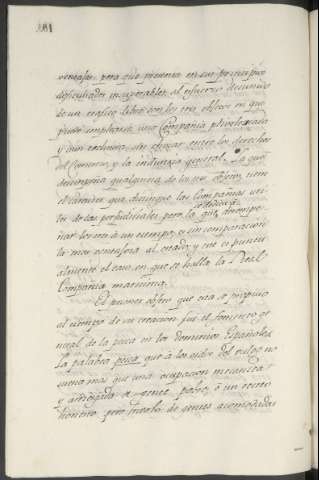 ventajas, pero que presenta en su principio
dificultades insuperables al esfuerzo
de un trafico libre son los tres objetos en que
puede emplearse una Compañia privilegiada
y aun exclusiva, sin chocar contra los derechos
del Comercio, y la industria general. La que
desempeña qualquiera de las tres
el caracter que distingue las Compañias
de las perjudiciales pero la que
á un tiempo, es sin comparacion
la mas ventajosa al estado, y este es puntu
almente el caso en que se halla la Real
Compañia maritima.
El primer objeto que esta se propuso
al tiempo de su creacion fue el fomento ge
neral de la pesca en los dominios Españoles.
La palabra pesca, que á los oidos del vulgo no
suena mas que una ocupacion mecanica
y arriesgada de gente pobre, ó un
de gentes acomodadas